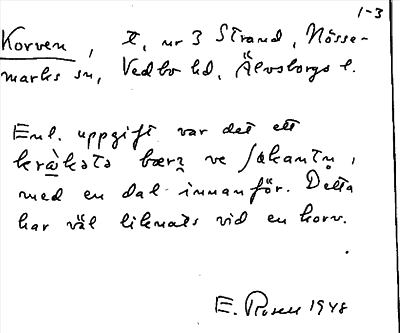 1-3
Korven, t, nr 3 Strand, Nösse-
marks sn, Vedbo hd, Älvsborgs l.
Enl. uppgift var det ett
kràkətə bærɜ ve ʃøkantn̥,
med en dal innanför. Detta
har väl liknats vid en korv.
E. Rosell 1948